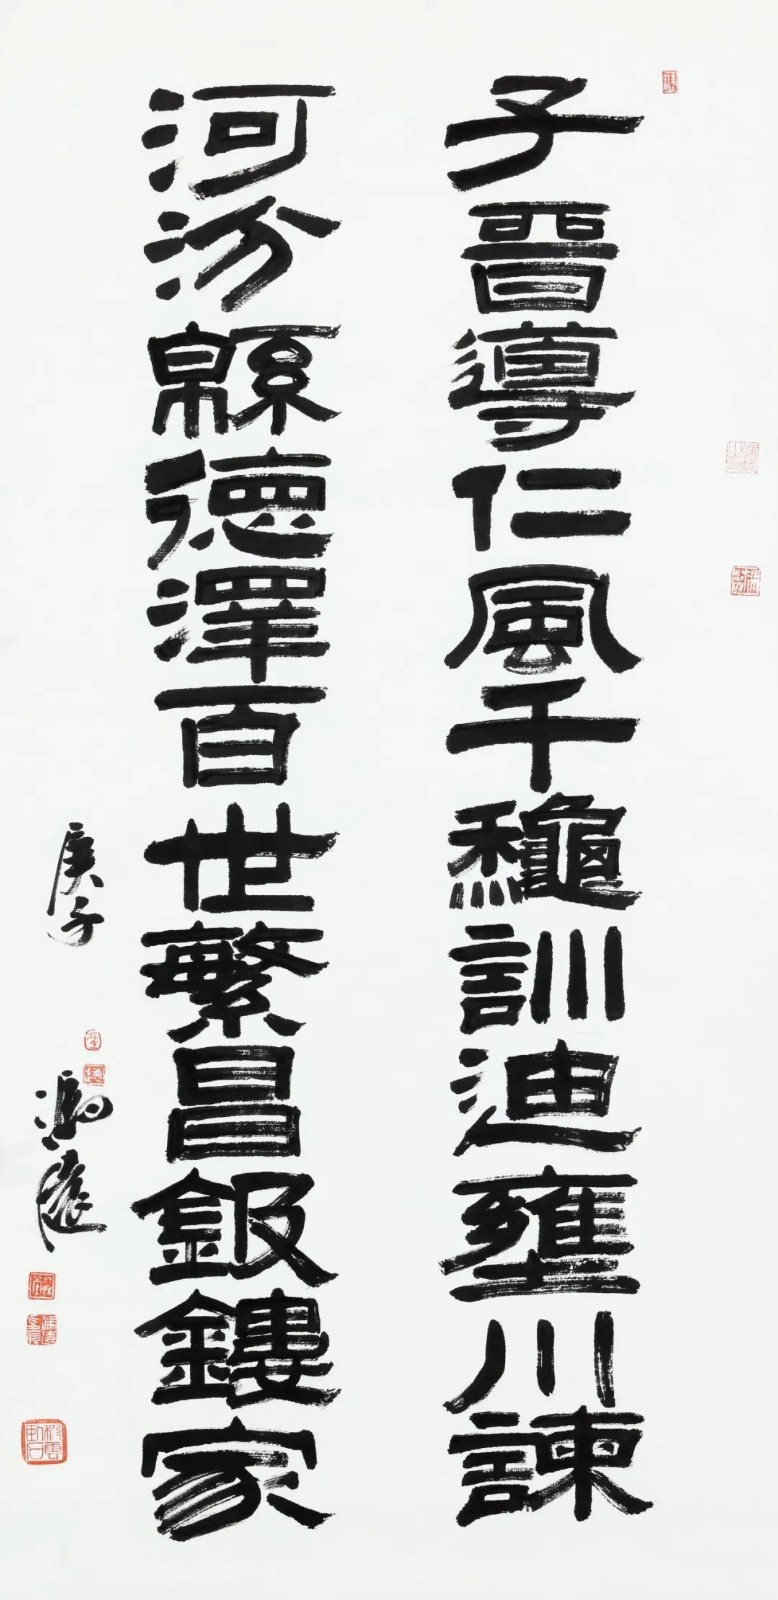 子晉導仁風千龝訓迪壅川諫
河汾緜德澤百世繁昌鈒鏤家
庚子
馮遠